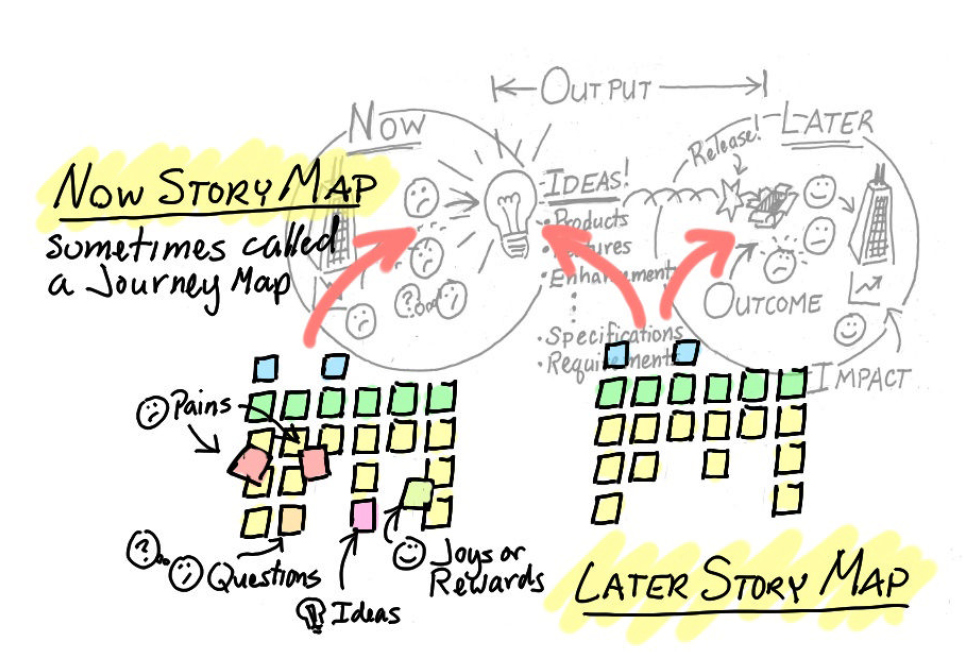 OUTPUT
NOW
LATER
Release!
NOW STORY MAP
sometimes called
a Journey Map
IDEAS!
• Products
• Enhancement
• Specifications
• Requirements
OUTCOME
IMPACT
Pains
? Questions
Ideas
Joys or
Rewards
LATER STORY MAP